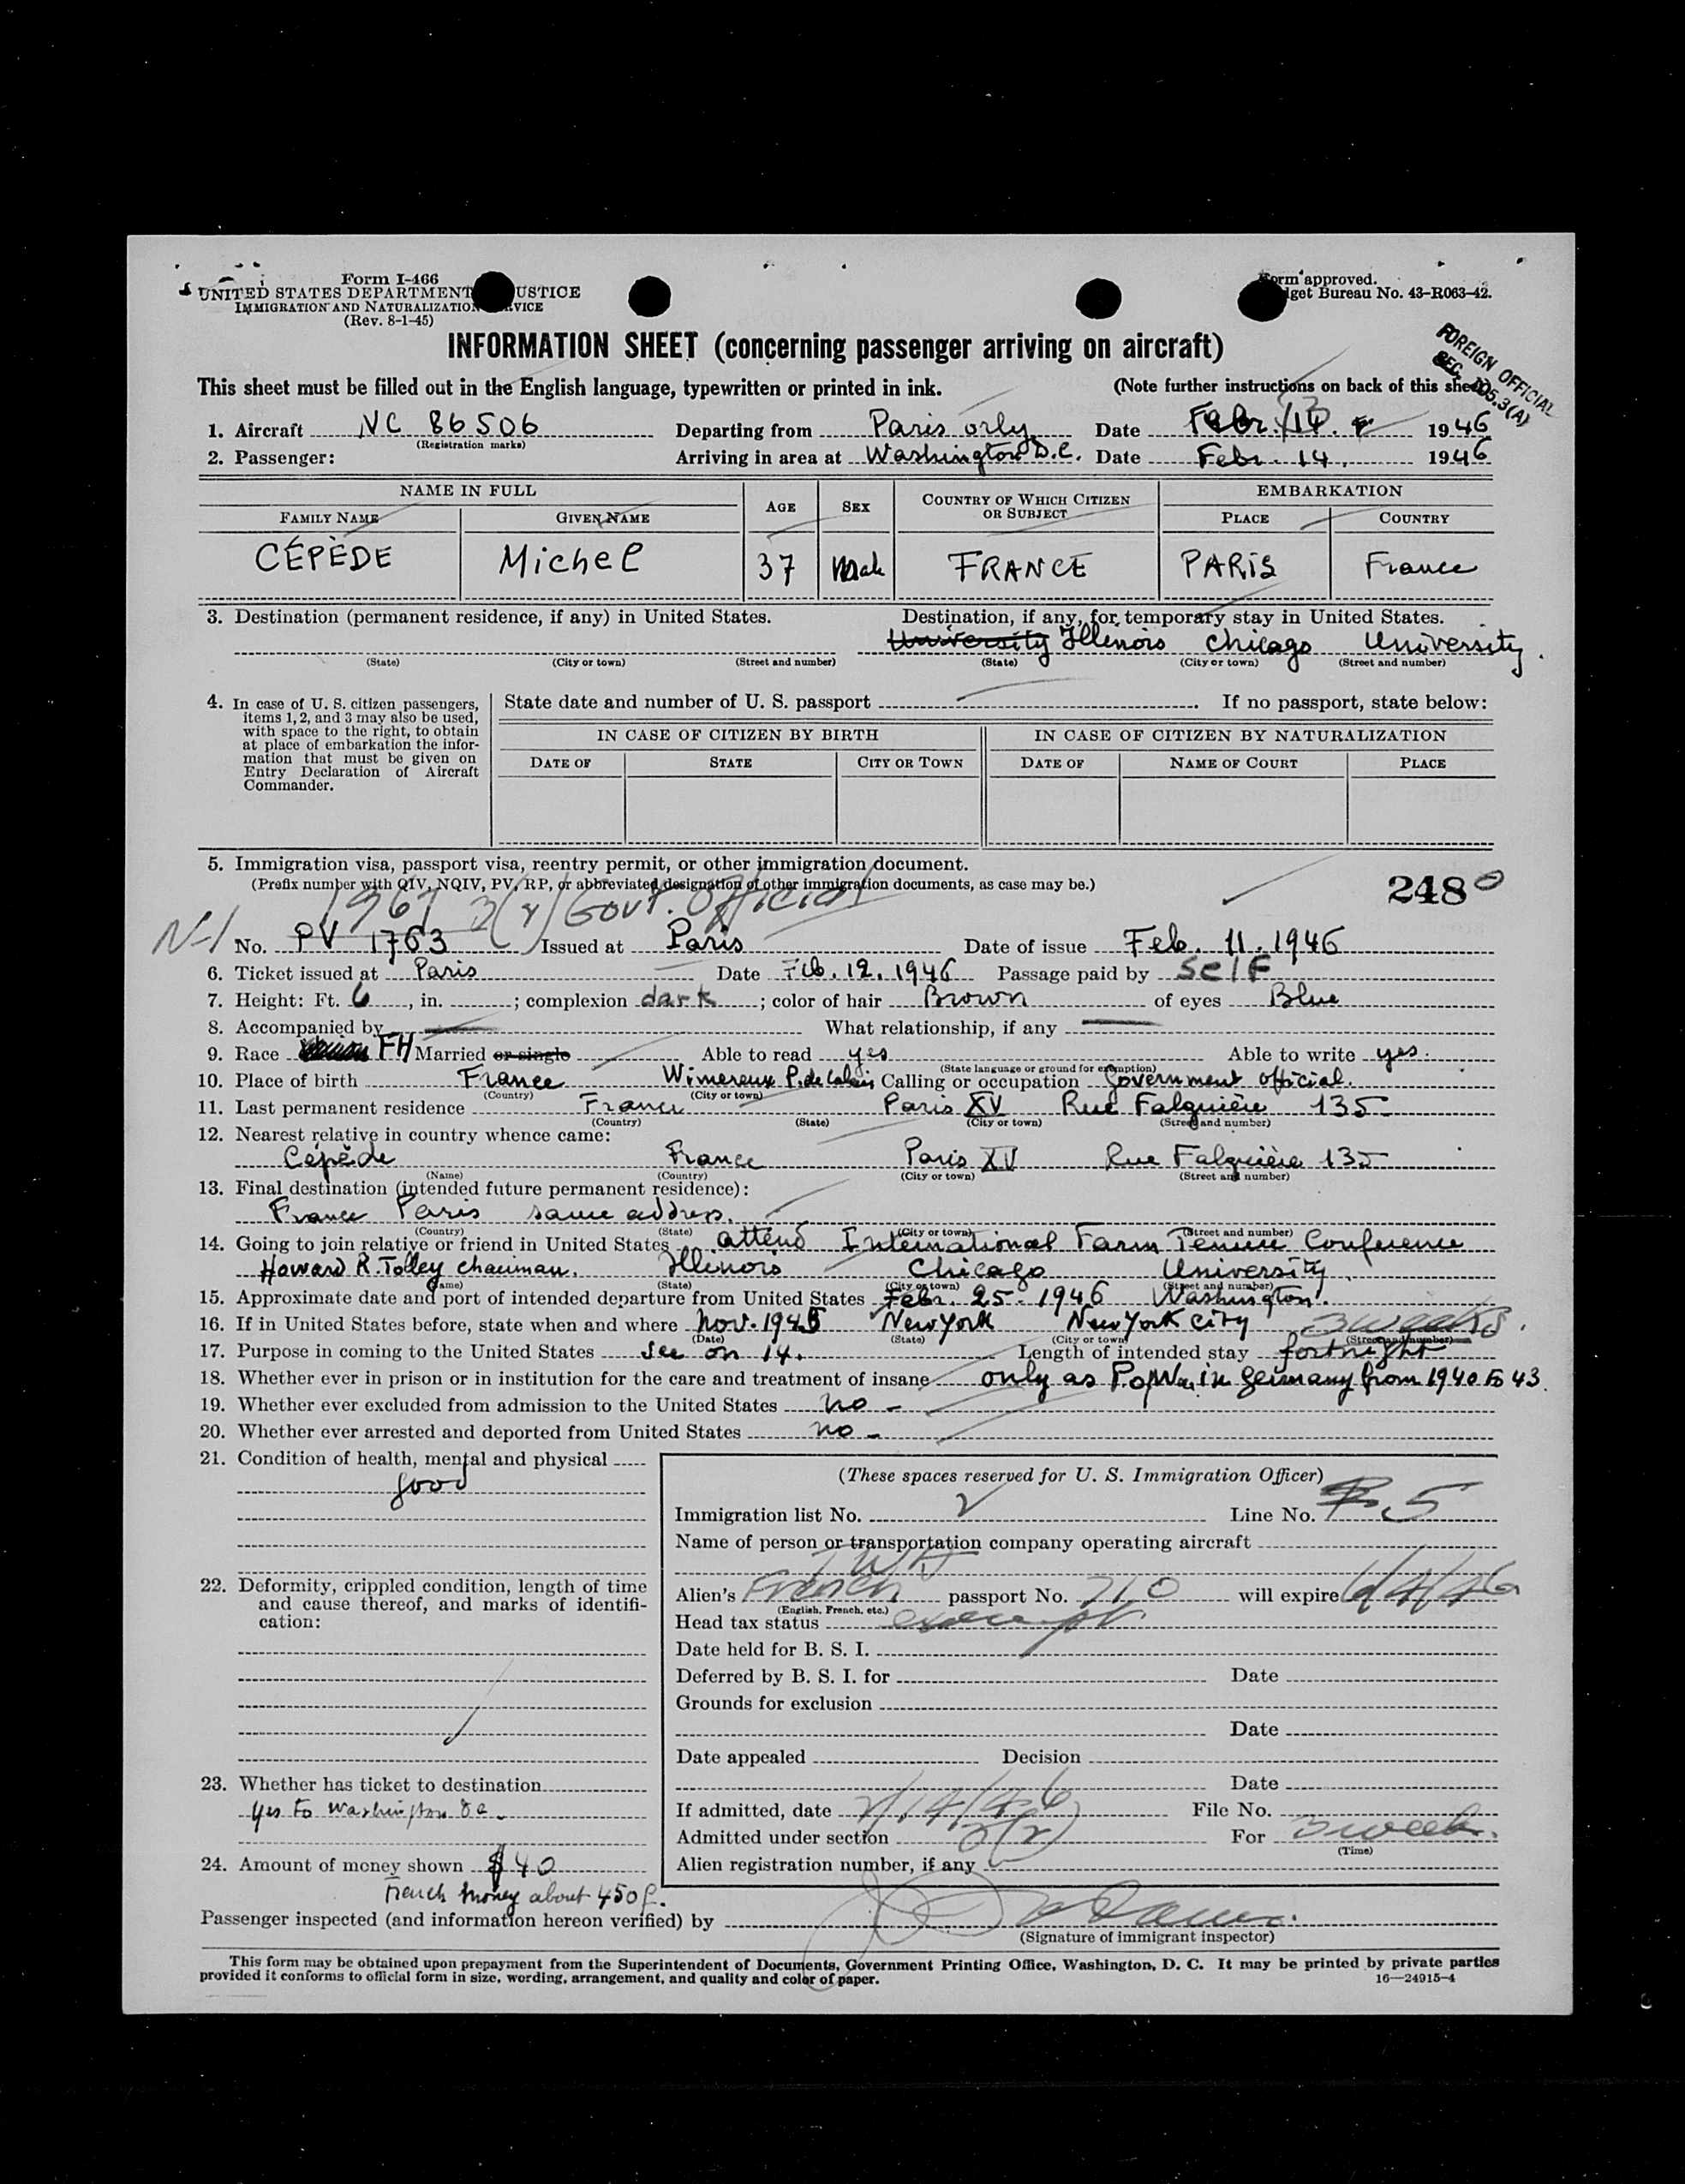 Form I-466
UNITED STATES DEPARTMENT USTICE
IMMIGRATION AND NATURALIZATION VICE
(Rev. 8-1-45)
Form approved.
get Bureau No. 43-R063-42.
INFORMATION SHEET (concerning passenger arriving on aircraft)
FOREIGN OFFICIAL
SEC. 105.3(A)
This sheet must be filled out in the English language, typewritten or printed in ink. (Note further instructions on back of this sheet)
1. Aircraft NC 86506 Departing from Paris Orly Date Febr. 13 1946
(Registration marks)
2. Passenger: Arriving in area at Washington D.C. Date Febr. 14. 1946
NAME IN FULL AGE SEX COUNTRY OF WHICH CITIZEN OR SUBJECT EMBARKATION
FAMILY NAME GIVEN NAME PLACE COUNTRY
CÉPÈDE Michel 37 Male FRANCE PARIS France
3. Destination (permanent residence, if any) in United States. Destination, if any, for temporary stay in United States.
University Illenois Chicago University.
(State) (City or town) (Street and number) (State) (City or town) (Street and number)
4. In case of U. S. citizen passengers, items 1, 2, and 3 may also be used, with space to the right, to obtain at place of embarkation the information that must be given on Entry Declaration of Aircraft Commander.
State date and number of U. S. passport If no passport, state below:
IN CASE OF CITIZEN BY BIRTH IN CASE OF CITIZEN BY NATURALIZATION
DATE OF STATE CITY OR TOWN DATE OF NAME OF COURT PLACE
5. Immigration visa, passport visa, reentry permit, or other immigration document.
(Prefix number with QIV, NQIV, PV, RP, or abbreviated designation of other immigration documents, as case may be.)
2480
1967 3(1) Govt. Official
N-1 No. PV 1763 Issued at Paris Date of issue Feb. 11. 1946
6. Ticket issued at Paris Date Feb. 12. 1946 Passage paid by Self
7. Height: Ft. 6, in. ; complexion dark ; color of hair Brown of eyes Blue
8. Accompanied by What relationship, if any
9. Race FH Married or single Able to read yes Able to write yes.
(State language or ground for exemption)
10. Place of birth France Wimereux P. de Calais Calling or occupation Government official.
(Country) (City or town)
11. Last permanent residence France Paris XV Rue Falguière 135
(Country) (State) (City or town) (Street and number)
12. Nearest relative in country whence came:
Cépède France Paris XV Rue Falguière 135
(Name) (Country) (City or town) (Street and number)
13. Final destination (intended future permanent residence):
France Paris same address.
(Country) (State) (City or town) (Street and number)
14. Going to join relative or friend in United States attend International Farm Tenure Conference
Howard R. Tolley chairman. Illenois Chicago University.
(Name) (State) (City or town) (Street and number)
15. Approximate date and port of intended departure from United States Febr. 25. 1946 Washington.
16. If in United States before, state when and where Nov. 1945 New York New York City 3 weeks.
(Date) (State) (City or town) (Street and number)
17. Purpose in coming to the United States See on 14. Length of intended stay fortnight
18. Whether ever in prison or in institution for the care and treatment of insane only as P.o.W. in Germany from 1940 to 43.
19. Whether ever excluded from admission to the United States no -
20. Whether ever arrested and deported from United States no -
21. Condition of health, mental and physical
good
(These spaces reserved for U. S. Immigration Officer)
Immigration list No. 2 Line No. 5
Name of person or transportation company operating aircraft
TWA
22. Deformity, crippled condition, length of time and cause thereof, and marks of identification:
Alien's French passport No. 710 will expire 6/4/46
(English, French, etc.)
Head tax status exempt
Date held for B. S. I.
Deferred by B. S. I. for Date
Grounds for exclusion
Date
Date appealed Decision
Date
23. Whether has ticket to destination
yes to Washington D.C.
If admitted, date 2/14/46 File No.
Admitted under section 3(1) For 3 weeks.
(Time)
Alien registration number, if any
24. Amount of money shown $ 40
French money about 450 f.
Passenger inspected (and information hereon verified) by
(Signature of immigrant inspector)
This form may be obtained upon prepayment from the Superintendent of Documents, Government Printing Office, Washington, D. C. It may be printed by private parties
provided it conforms to official form in size, wording, arrangement, and quality and color of paper. 16—24915-4